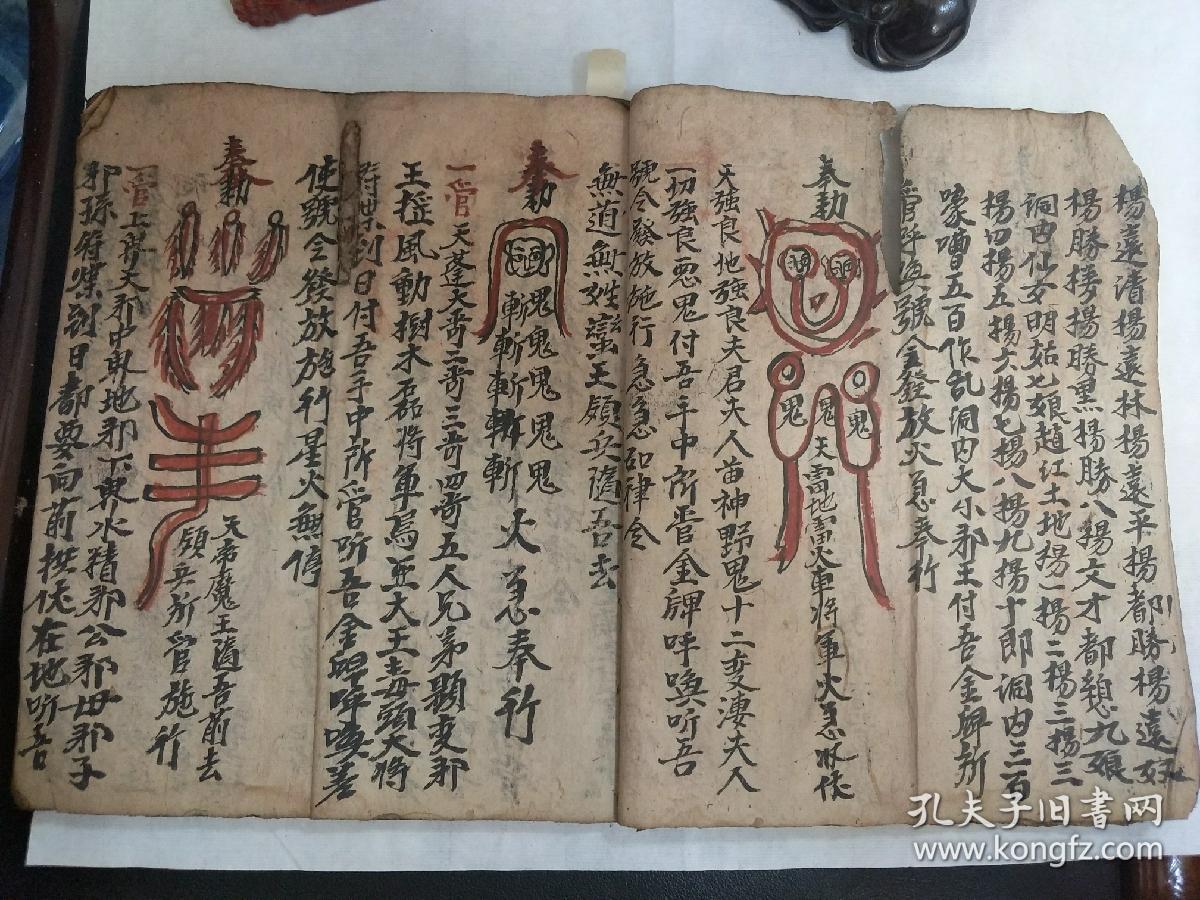 楊遠清楊遠林楊遠平楊都勝楊遠好
楊勝榜楊勝黑楊勝八楊文才都總九娘
洞內仙女明姑七娘趙江土地楊一楊二楊三楊三
楊四楊五楊六楊七楊八楊九楊十郎洞內三百
嘍嘈五百作乱洞內大小邪王付吾金牌所
管呼為號令發放火急奉行
奉勅
鬼
鬼
鬼
天雷地雷火車將軍火急收伏
天強良地強良夫君夫人苗神野鬼十二变淒夫人
一切強良惡鬼付吾手中所管金牌呼喚听吾
號令發放施行急急如律令
無道無姓蛮王領兵隨吾去
奉勅
鬼鬼鬼鬼鬼
斬斬斬斬斬
火急奉行
一管
天蓬大哥二哥三哥四哥五人兄弟顕变邪
王搖風動樹木石磊將軍烏巫大王毒頭大將
到日付吾手中所管听吾金牌呼喚差
使號令發放施行星火無停
奉勅
天帝魔王隨吾前去
領兵所管施行
一管
上界天邪中界地邪下界水精邪公邪母邪子
邪孫符燦到日都要向前拱伏在地听吾
孔夫子旧書网
www.kongfz.com